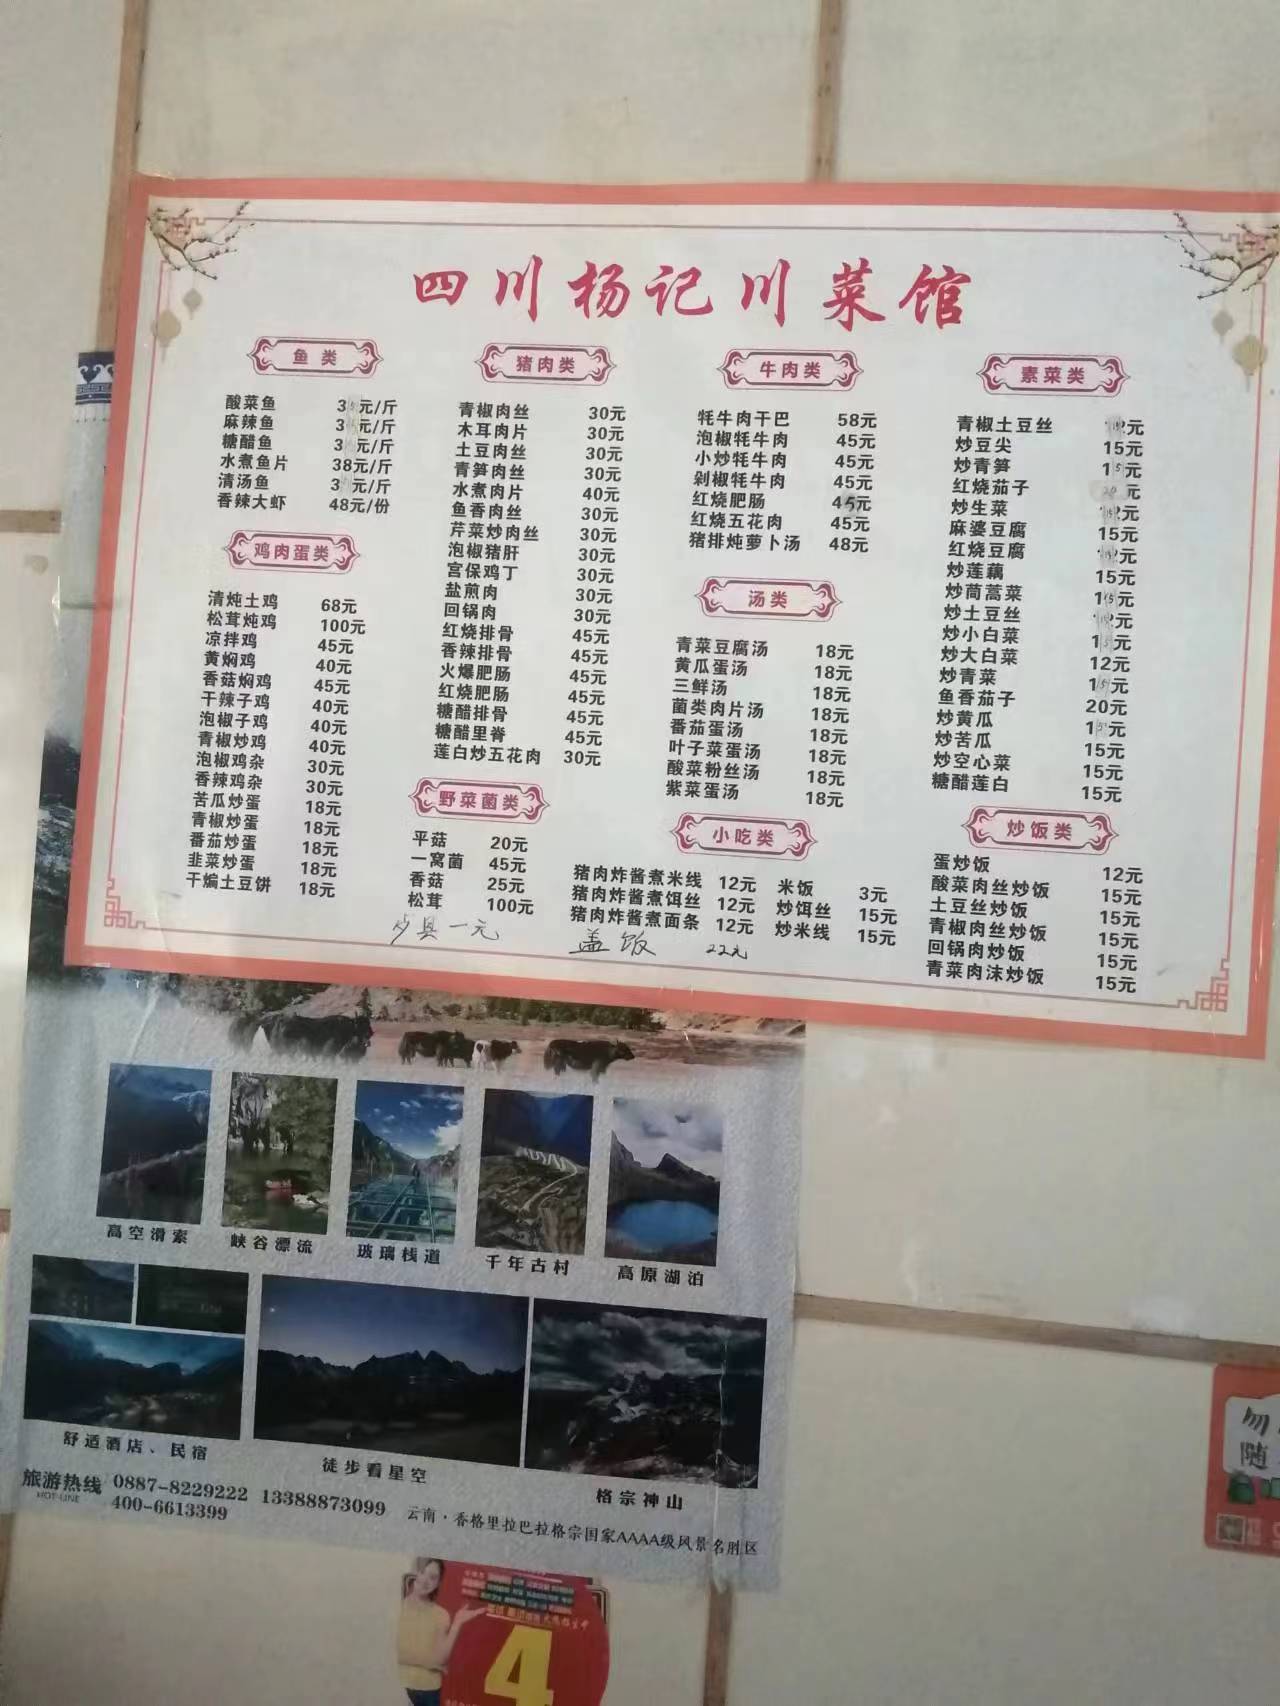 四川杨记川菜馆
鱼类
酸菜鱼 元/斤
麻辣鱼 元/斤
糖醋鱼 元/斤
水煮鱼片 38元/斤
清汤鱼 元/斤
香辣大虾 48元/份
鸡肉蛋类
清炖土鸡 68元
松茸炖鸡 100元
凉拌鸡 45元
黄焖鸡 40元
香菇焖鸡 45元
干辣子鸡 40元
泡椒子鸡 40元
青椒炒鸡 40元
泡椒鸡杂 30元
香辣鸡杂 30元
苦瓜炒蛋 18元
青椒炒蛋 18元
番茄炒蛋 18元
韭菜炒蛋 18元
干煸土豆饼 18元
猪肉类
青椒肉丝 30元
木耳肉片 30元
土豆肉丝 30元
青笋肉丝 30元
水煮肉片 40元
鱼香肉丝 30元
芹菜炒肉丝 30元
泡椒猪肝 30元
宫保鸡丁 30元
盐煎肉 30元
回锅肉 30元
红烧排骨 45元
香辣排骨 45元
火爆肥肠 45元
红烧肥肠 45元
糖醋排骨 45元
糖醋里脊 45元
莲白炒五花肉 30元
野菜菌类
平菇 20元
一窝菌 45元
香菇 25元
松茸 100元
一元
牛肉类
牦牛肉干巴 58元
泡椒牦牛肉 45元
小炒牦牛肉 45元
剁椒牦牛肉 45元
红烧肥肠 45元
红烧五花肉 45元
猪排炖萝卜汤 48元
汤类
青菜豆腐汤 18元
黄瓜蛋汤 18元
三鲜汤 18元
菌类肉片汤 18元
番茄蛋汤 18元
叶子菜蛋汤 18元
酸菜粉丝汤 18元
紫菜蛋汤 18元
小吃类
猪肉炸酱煮米线 12元 米饭 3元
猪肉炸酱煮饵丝 12元 炒饵丝 15元
猪肉炸酱煮面条 12元 炒米线 15元
盖饭 22元
素菜类
青椒土豆丝 元
炒豆尖 15元
炒青笋 15元
红烧茄子 元
炒生菜 元
麻婆豆腐 15元
红烧豆腐 元
炒莲藕 15元
炒茼蒿菜 15元
炒土豆丝 元
炒小白菜 15元
炒大白菜 12元
炒青菜 15元
鱼香茄子 20元
炒黄瓜 15元
炒苦瓜 15元
炒空心菜 15元
糖醋莲白 15元
炒饭类
蛋炒饭 12元
酸菜肉丝炒饭 15元
土豆丝炒饭 15元
青椒肉丝炒饭 15元
回锅肉炒饭 15元
青菜肉沫炒饭 15元
高空滑索
峡谷漂流
玻璃栈道
千年古村
高原湖泊
舒适酒店、民宿
徒步看星空
格宗神山
旅游热线 0887-8229222 13388873099
HOT-LINE 400-6613399
云南·香格里拉巴拉格宗国家AAAA级风景名胜区
勿
随
4